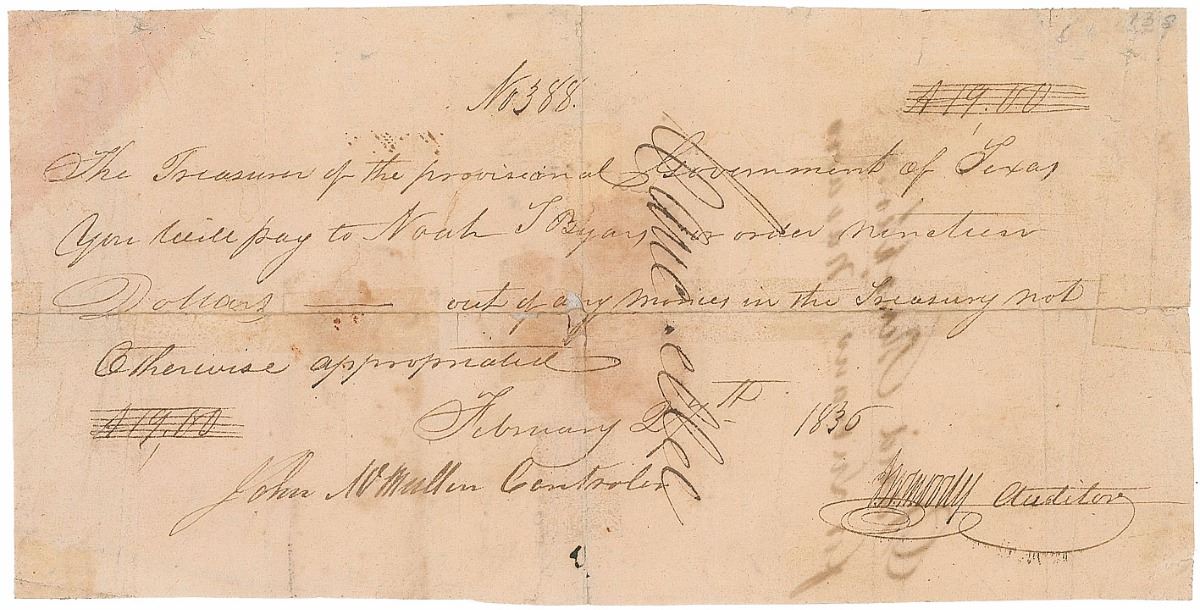 138
No 388.
$19.00
The Treasurer of the provisional Government of Texas
You will pay to Noah T Byars or order nineteen
Dollars —— out of any monies in the Treasury not
Otherwise appropriated
$19,00
February 27th 1836
John McMullen Controler
JW Moody Auditor
Cancelled